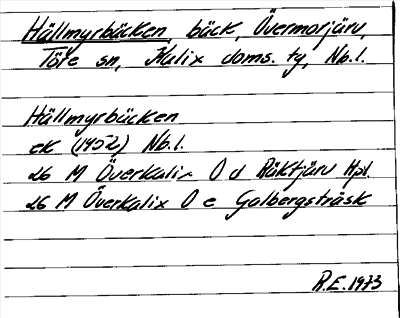 Hällmyrbäcken, bäck, Övermorjärv,
Töre sn, Kalix doms. ty, Nb.l.
Hällmyrbäcken
ek (1952) Nb.l.
26 M Överkalix O d Räktjärv Hpl.
26 M Överkalix O e Galbergsträsk
R.E. 1973